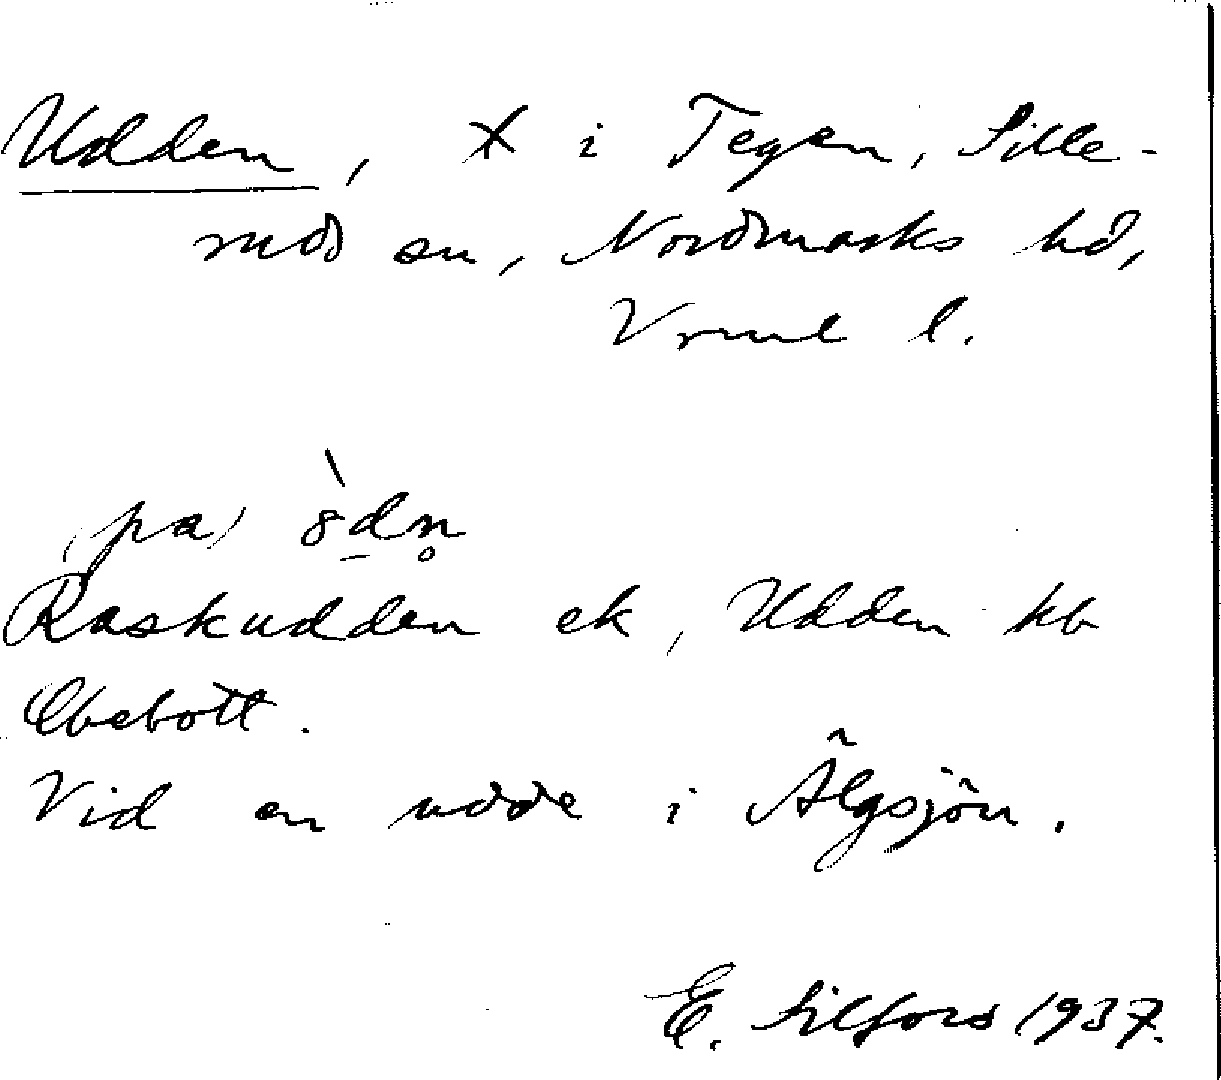 Udden, × i Tegen, Sille-
ruds sn, Nordmarks hd,
Vrml l.
(på) 8̀dn̥
Raskudden ek, Udden kb
Obebott.
Vid en udde i Älgsjön.
E. Silfors 1937.